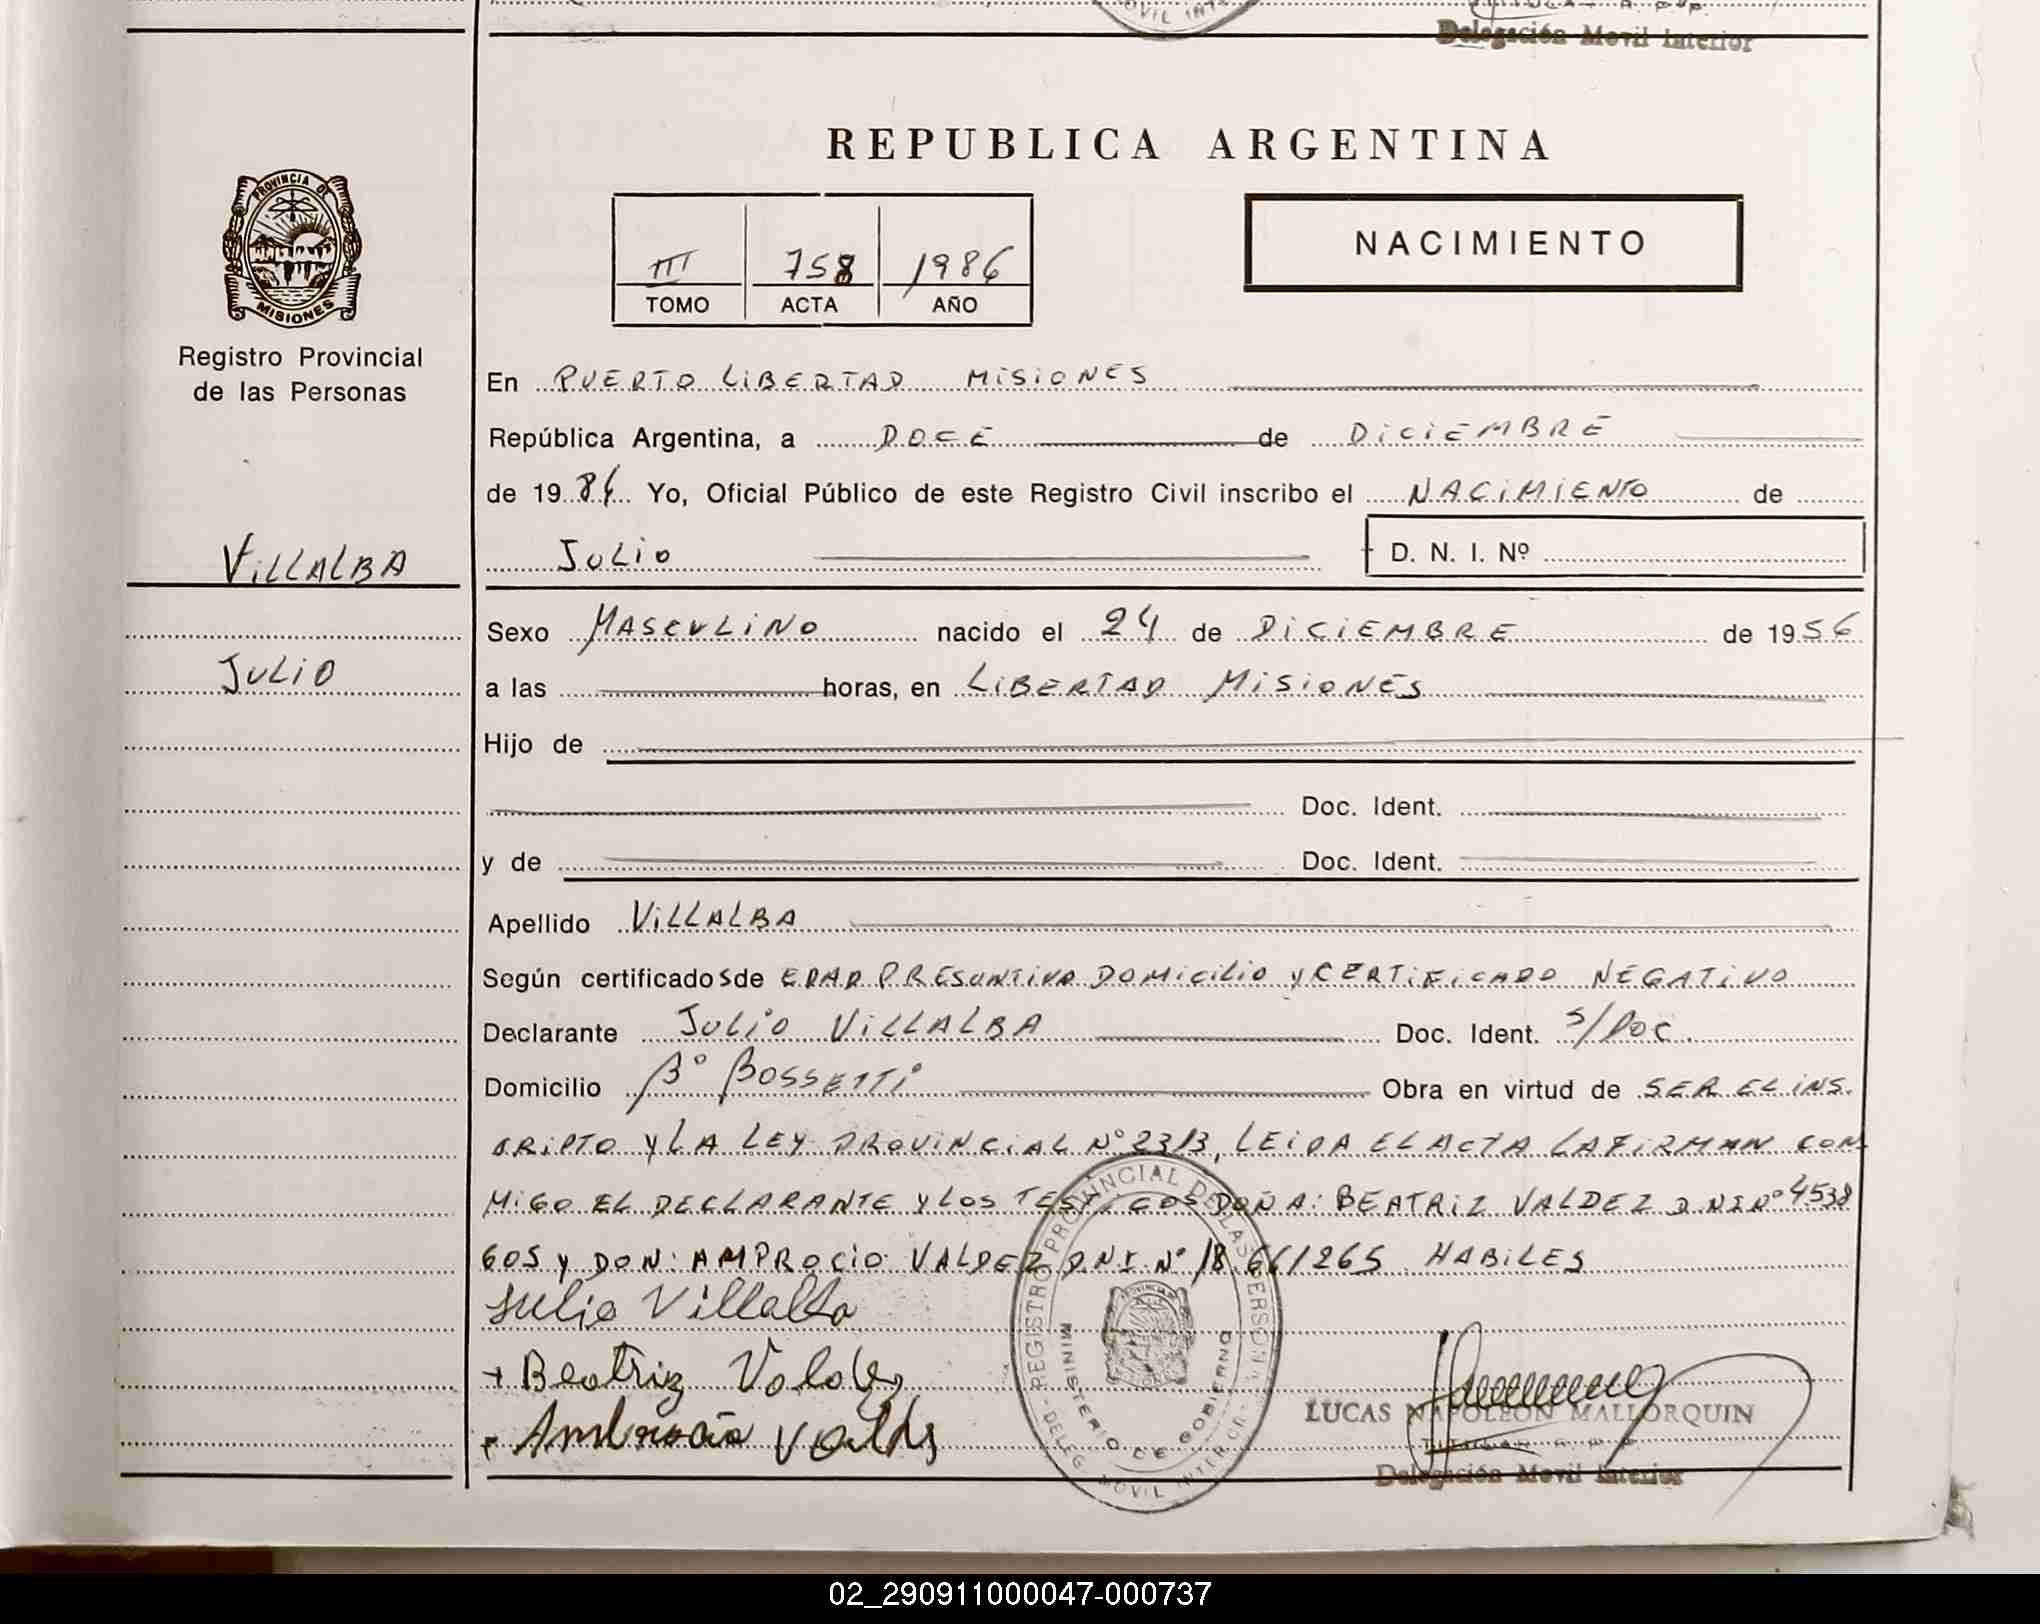 Delegación Movil Interior
REPUBLICA ARGENTINA
PROVINCIA DE
MISIONES
III 758 1986
TOMO ACTA AÑO
NACIMIENTO
Registro Provincial
de las Personas
En PUERTO LIBERTAD MISIONES
República Argentina, a DOCE de DICIEMBRE
de 19 86 Yo, Oficial Público de este Registro Civil inscribo el NACIMIENTO de
VILLALBA
JULIO D. N. I. Nº
Sexo MASCULINO nacido el 24 de DICIEMBRE de 19 56
JULIO
a las horas, en LIBERTAD MISIONES
Hijo de
Doc. Ident.
y de Doc. Ident.
Apellido VILLALBA
Según certificados de EDAD PRESUNTIVA DOMICILIO Y CERTIFICADO NEGATIVO
Declarante JULIO VILLALBA Doc. Ident. S/DOC.
Domicilio Bº BOSSETTI Obra en virtud de SER EL INS.
CRIPTO Y LA LEY PROVINCIAL Nº 2313, LEIDA EL ACTA LA FIRMAN CON
MIGO EL DECLARANTE Y LOS TESTIGOS DOÑA: BEATRIZ VALDEZ D NI Nº 4538
605 Y DON: AMPROCIO VALDEZ D.N.I. Nº 18.661265 HABILES
Julio Villalba
+ Beatriz Valdez
+ Ambrocio Valdz
REGISTRO PROVINCIAL DE LAS PERSONAS
MINISTERIO DE GOBIERNO
- DELEG. MOVIL INTERIOR -
LUCAS NAPOLEON MALLORQUIN
Delegación Movil Interior
02_290911000047-000737